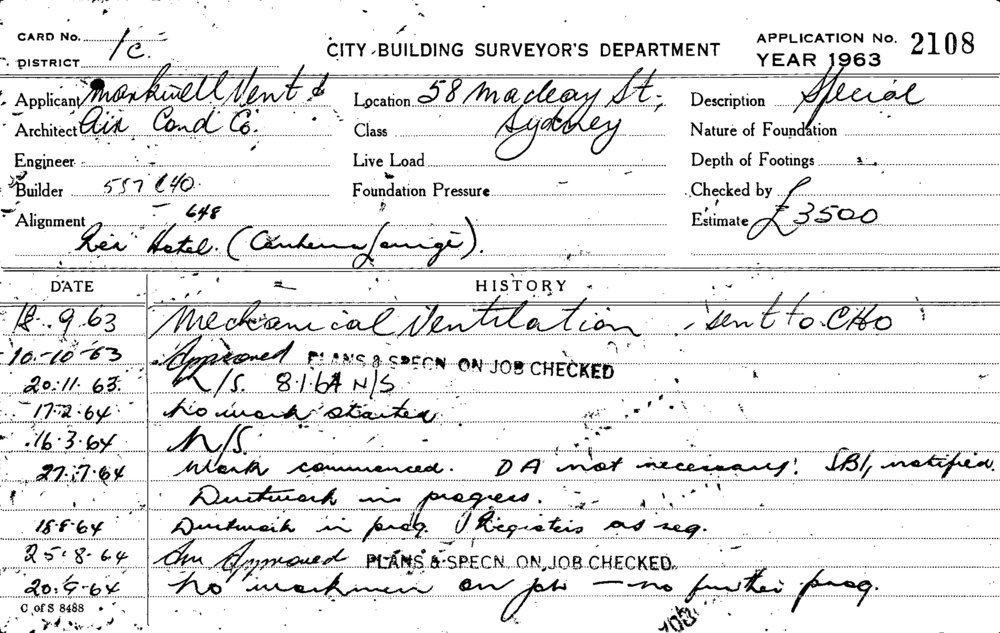 CARD No. 1C. CITY BUILDING SURVEYOR'S DEPARTMENT APPLICATION No. 2108
DISTRICT YEAR 1963
Applicant Markwell Vent & Location 58 Macleay St; Description Special
Architect Air Cond Co. Class Sydney Nature of Foundation
Engineer Live Load Depth of Footings
Builder 557 C40 Foundation Pressure Checked by
Alignment 648 Estimate £3500
Rex Hotel. (Canberra Lounge).
DATE HISTORY
18.9.63 Mechanical Ventilation sent to CHO
10-10-63 Approved PLANS & SPECN ON JOB CHECKED
20.11.63. N/S. 8.1.64 N/S
17.2.64 No work started
16.3.64 N/S.
27.7.64 Work commenced. DA not necessary. SBI, notified.
Ductwork in progress.
18.8.64 Ductwork in prog. Registers as req.
25.8.64 Am Approved PLANS & SPECN. ON JOB CHECKED.
20.9.64 No workmen on job — no further prog.
C of S 8488